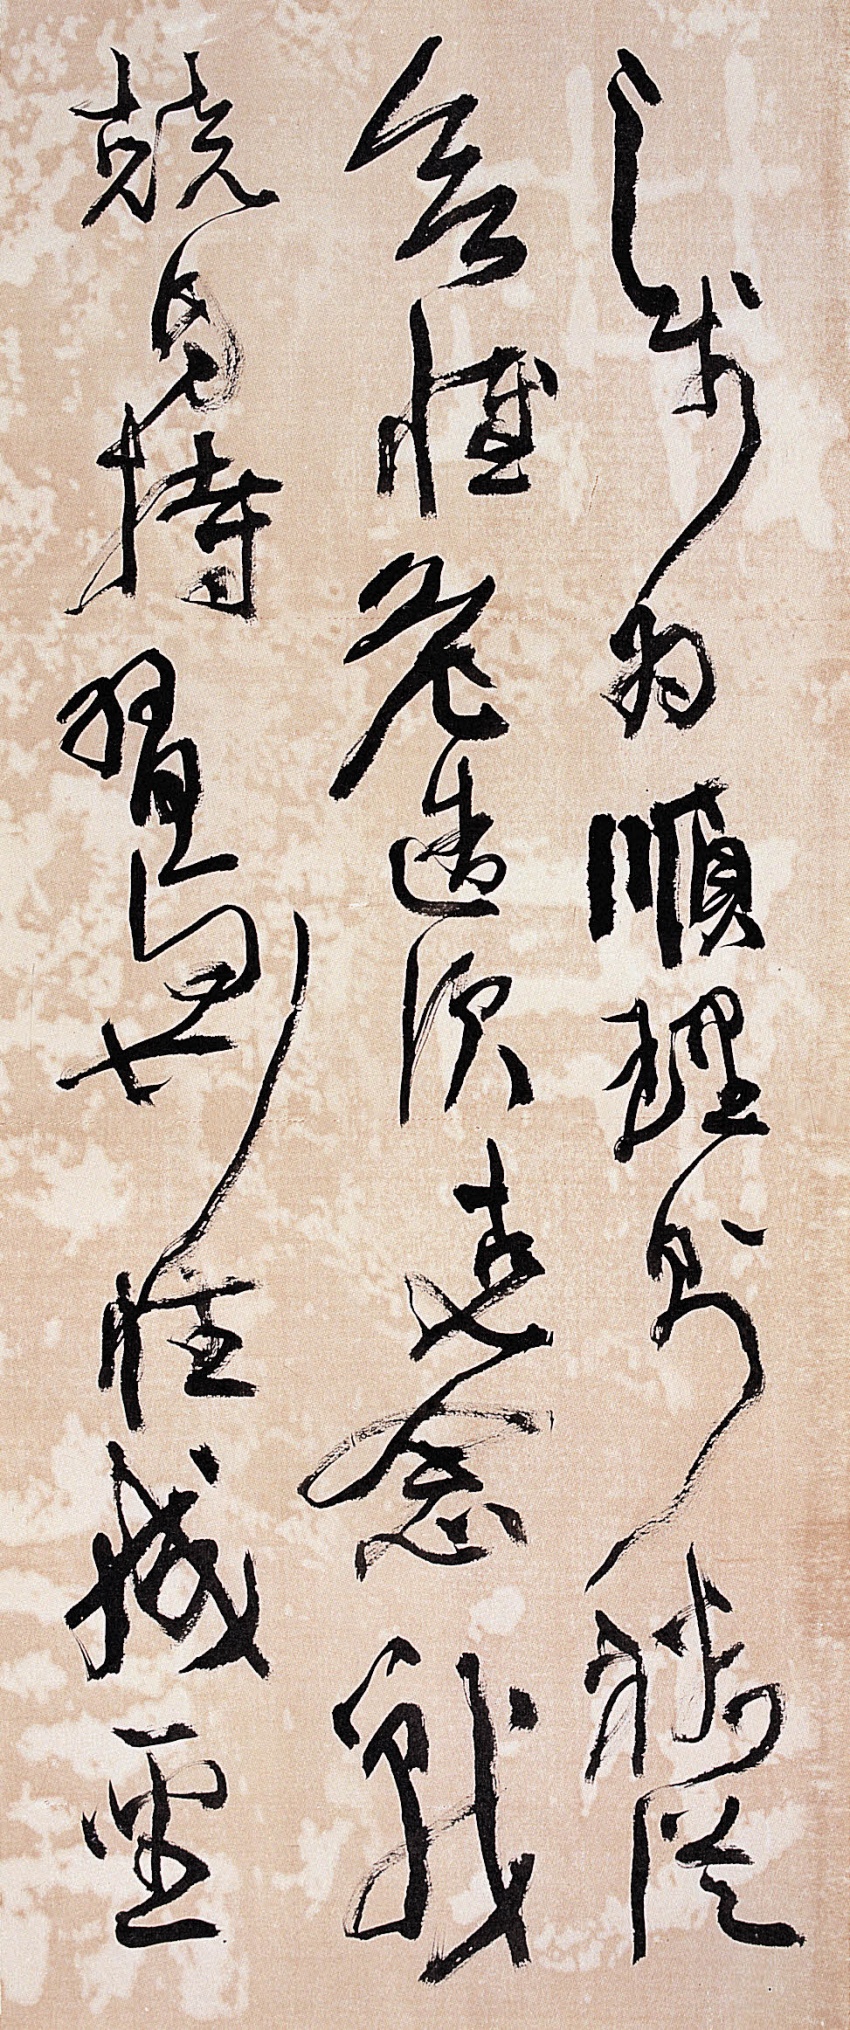 之於為順理則裕從
欲惟危造次克念戰
兢自持習與性成聖